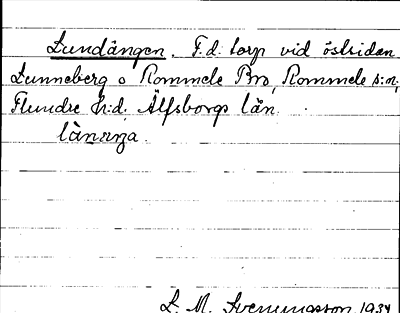 Lundängen. F.d. torp vid östsidan
Lunneberg o Rommele Bro, Rommele s:n,
Flundre h:d. Älfsborgs län.
länảnạ
L. M. Svenungsson 1934